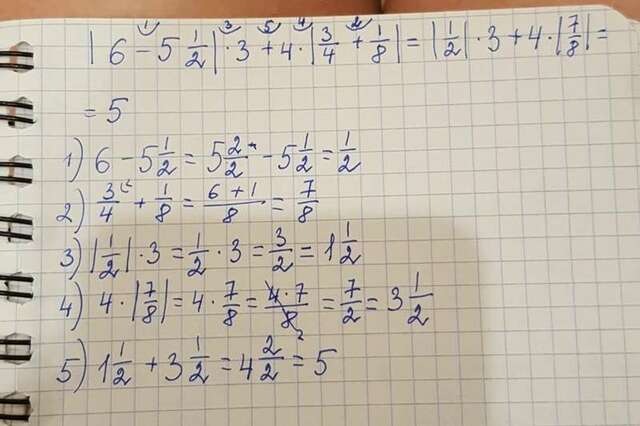 |6 - 5 1/2| · 3 + 4 · |3/4 + 1/8| = |1/2| · 3 + 4 · |7/8| =
= 5
1) 6 - 5 1/2 = 5 2/2 - 5 1/2 = 1/2
2) 3/4 + 1/8 = (6 + 1)/8 = 7/8
3) |1/2| · 3 = 1/2 · 3 = 3/2 = 1 1/2
4) 4 · |7/8| = 4 · 7/8 = (4 · 7)/8 = 7/2 = 3 1/2
5) 1 1/2 + 3 1/2 = 4 2/2 = 5